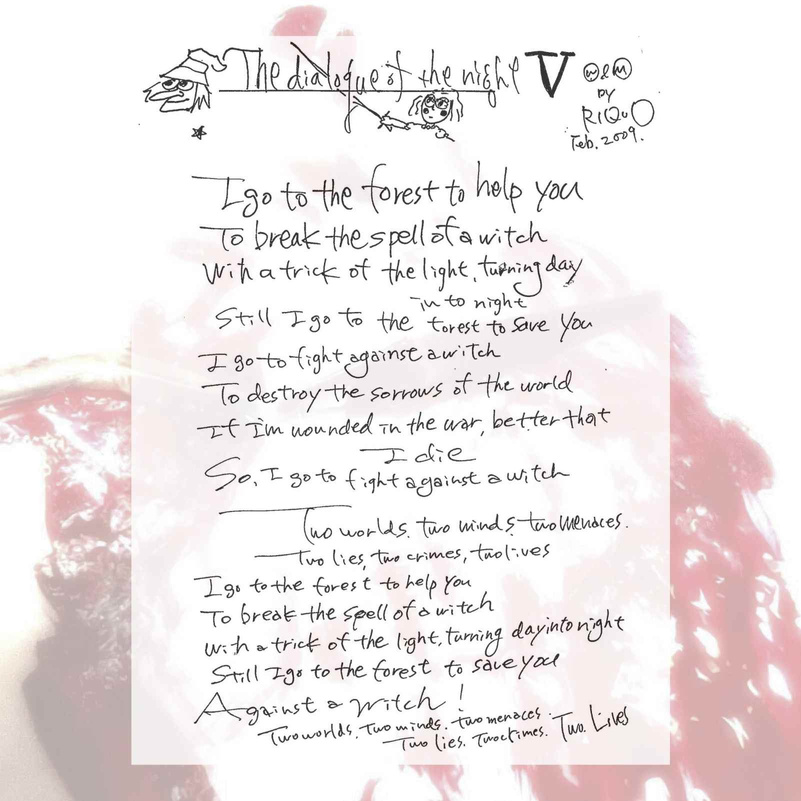 The dialogue of the night V
w&m
by
RIQUO
Feb. 2009.
I go to the forest to help you
To break the spell of a witch
With a trick of the light, turning day
in to night
Still I go to the forest to save you
I go to fight against a witch
To destroy the sorrows of the world
If I'm wounded in the war, better that
I die
So, I go to fight against a witch
Two worlds. two minds. two menaces.
Two lies, two crimes, two lives
I go to the forest to help you
To break the spell of a witch
With a trick of the light, turning day into night
Still I go to the forest to save you
Against a witch!
Two worlds. Two minds. two menaces.
Two lies. Two crimes. Two Lives